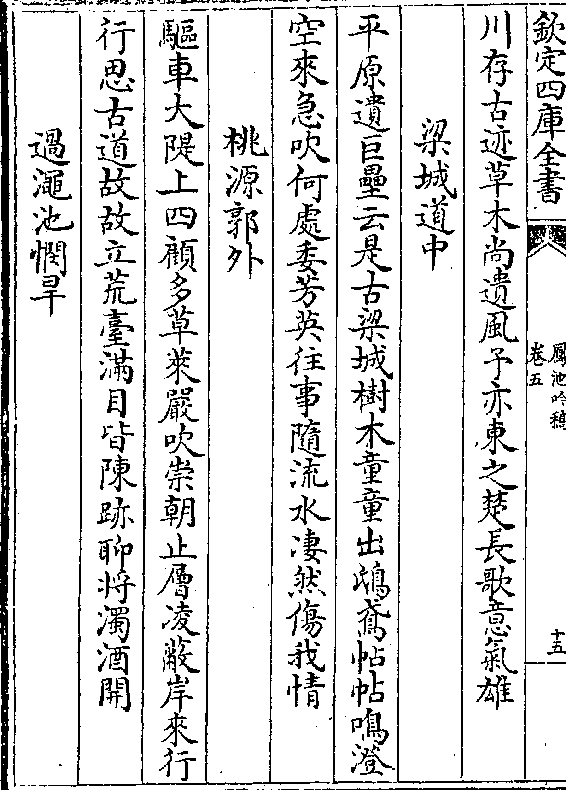 欽定四庫全書
鳳池吟稿
卷五
十五
川存古迹草木尚遺風予亦東之楚長歌意氣雄
梁城道中
平原遺巨壘云是古梁城樹木童童出鴟鳶帖帖鳴澄
空來急吹何處委芳英往事隨流水凄然傷我情
桃源郭外
驅車大隄上四顧多草萊嚴吹崇朝止層凌蔽岸來行
行思古道故故立荒臺滿目皆陳跡聊將濁酒開
過澠池憫旱